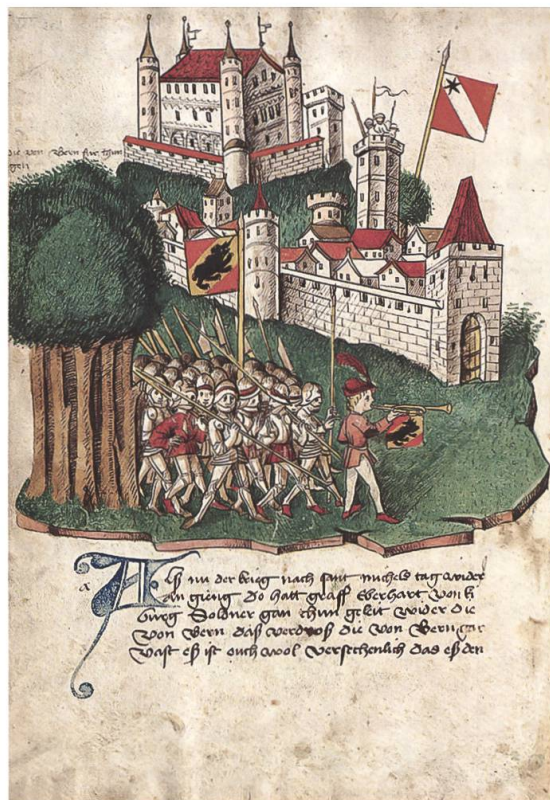 die von Bern für thun
Als nu der krieg nach sant michels tag wider
An gieng do hatt graff Eberhart von k
burg Soldner gan thun geleit wider die
von Bern das verdros die von Bern gar
vast es ist ouch wol versechenlich das es den